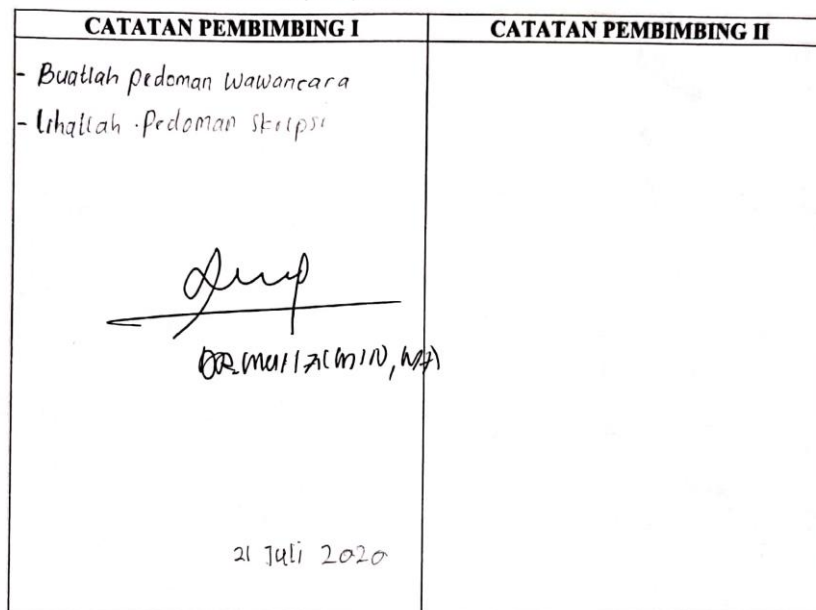 CATATAN PEMBIMBING I
CATATAN PEMBIMBING II
- Buatlah pedoman wawancara
- Lihatlah Pedoman Skripsi
21 Juli 2020